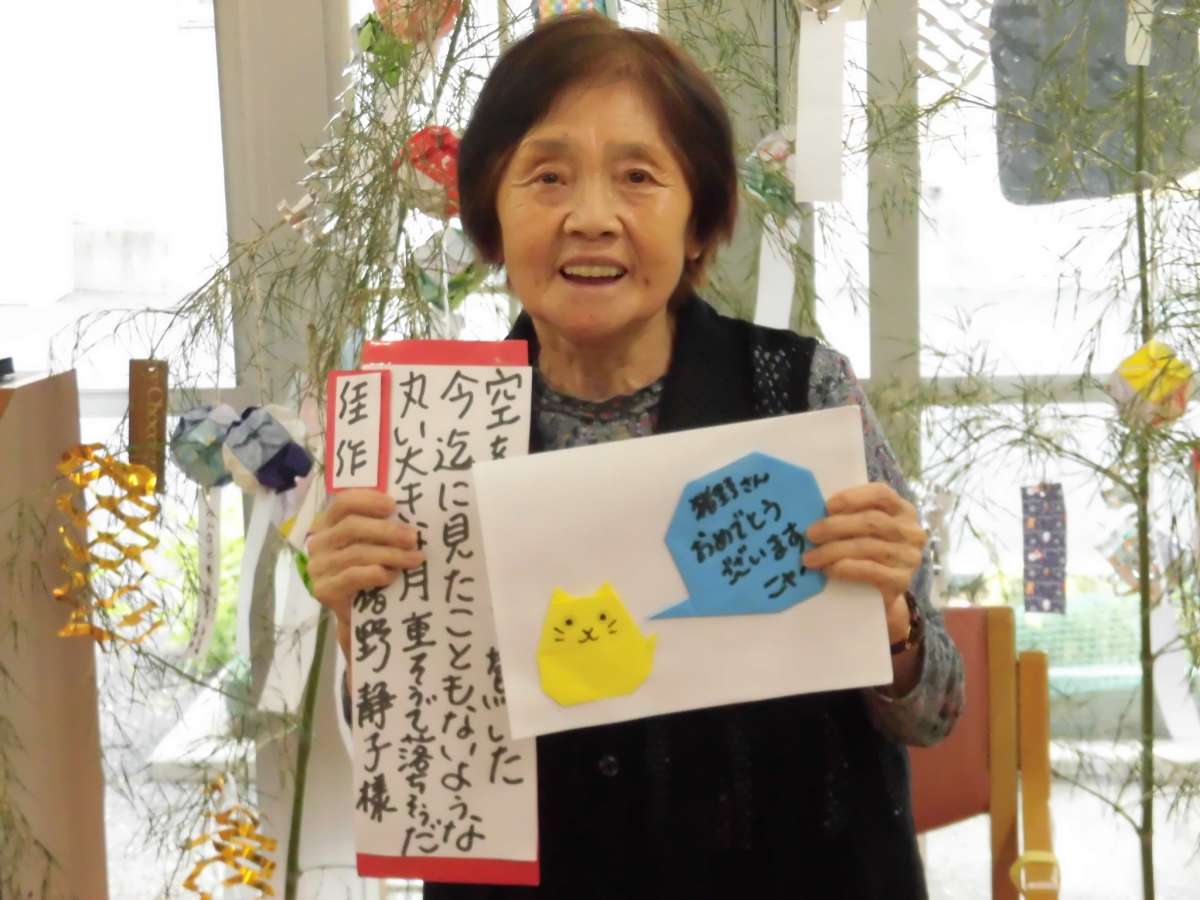 空を した
今迄に見たことも、ないような
丸い大きな月 重そうで落ちそうだ
佳作
猪野静子様
猪野さん
おめでとう
ございます